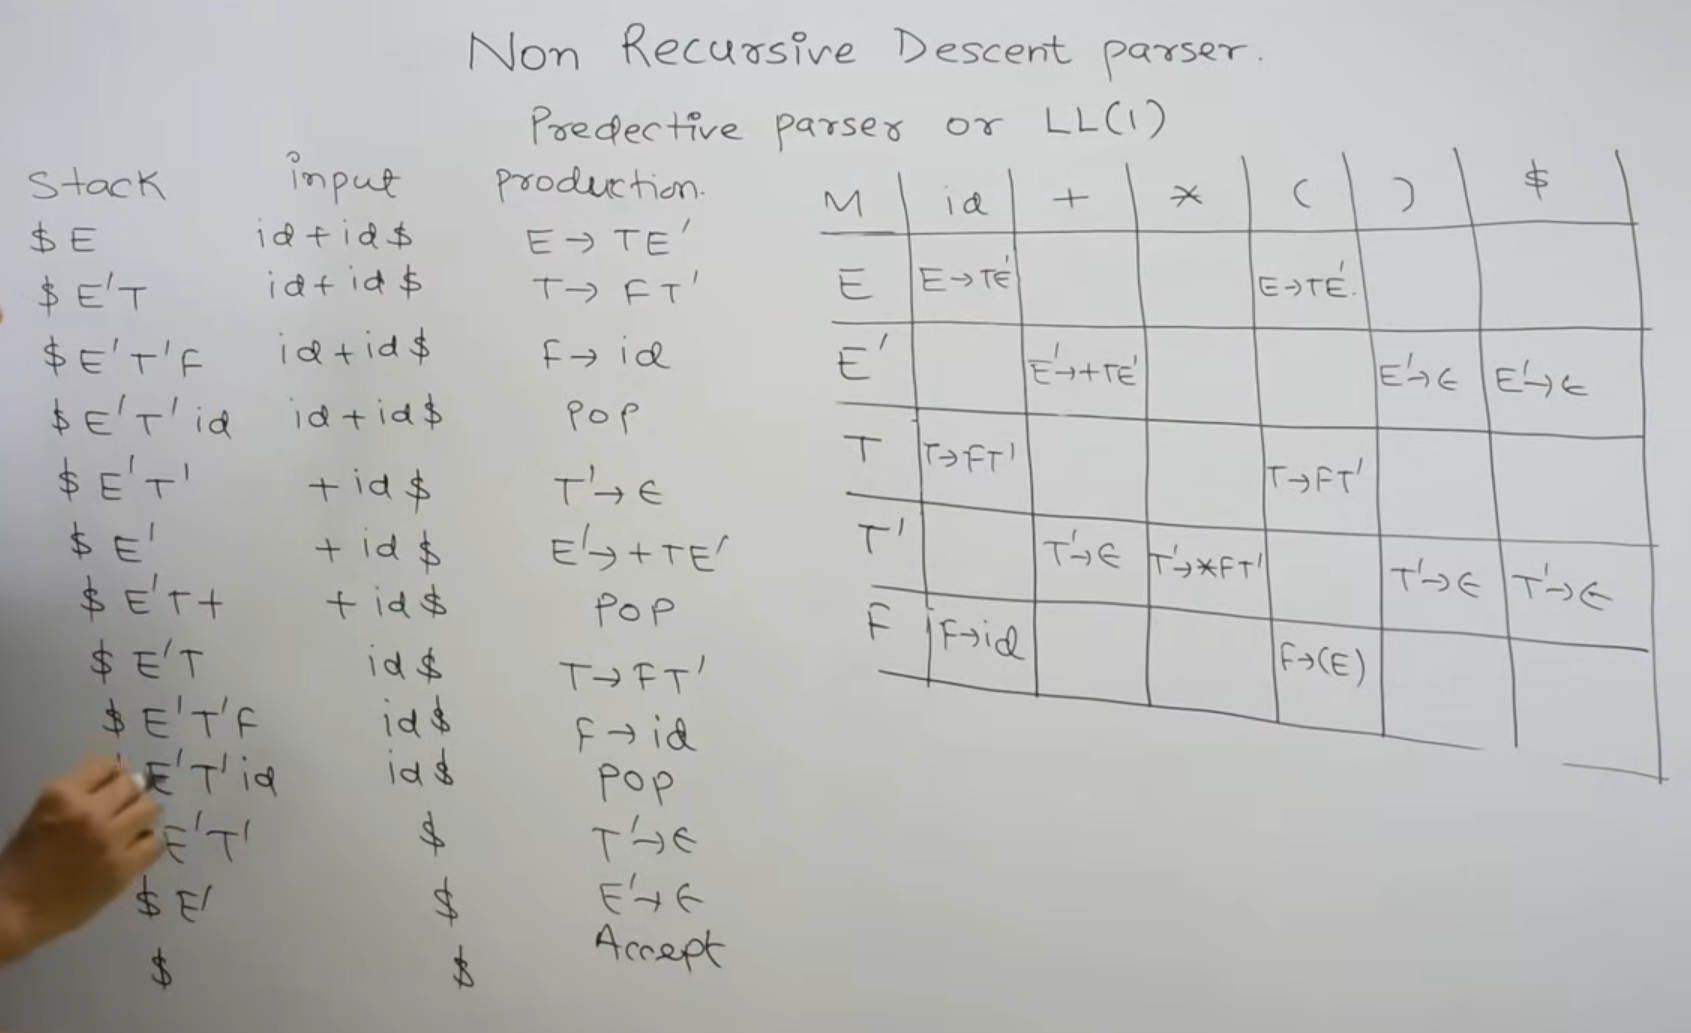 Non Recursive Descent parser.
Predective parser or LL(1)
Stack input production.
$ E id + id $ E → TE'
$ E'T id + id $ T → FT'
$ E'T'F id + id $ F → id
$ E'T' id id + id $ POP
$ E'T' + id $ T' → ϵ
$ E' + id $ E' → + TE'
$ E'T+ + id $ POP
$ E'T id $ T → FT'
$ E'T'F id $ F → id
E'T' id id $ POP
E'T' $ T' → ϵ
$ E' $ E' → ϵ
$ $ Accept
M id + * ( ) $
E E → TE' E → TE'.
E' E' → +TE' E' → ϵ E' → ϵ
T T → FT' T → FT'
T' T' → ϵ T' → *FT' T' → ϵ T' → ϵ
F F → id F → (E)